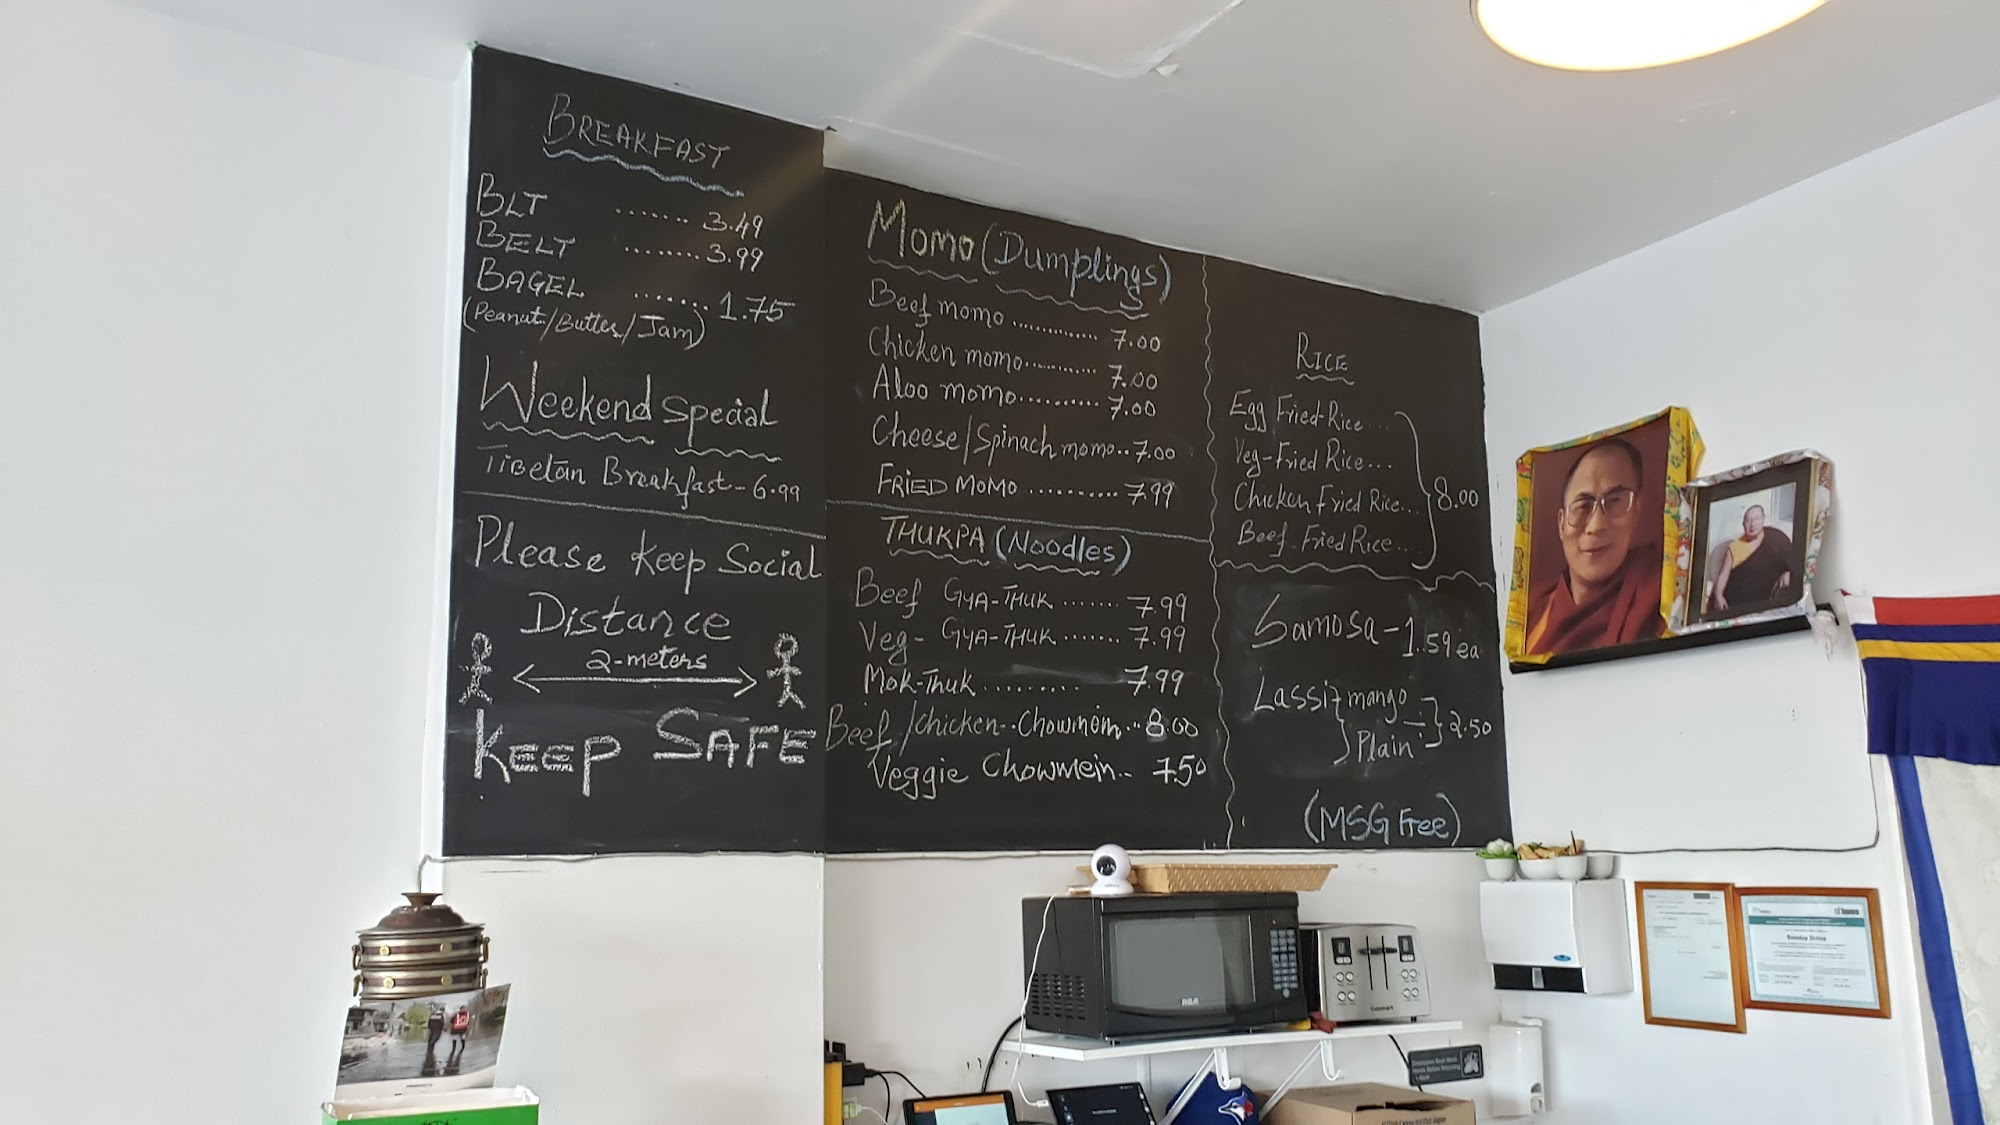 BREAKFAST
BLT ....... 3.49
BELT ........ 3.99
BAGEL ....... 1.75
(Peanut/Butter/Jam)
Weekend Special
Tibetan Breakfast - 6.99
Please Keep Social
Distance
2-meters
KEEP SAFE
MOMO (Dumplings)
Beef momo .............. 7.00
Chicken momo........... 7.00
Aloo momo.......... 7.00
Cheese/Spinach momo.. 7.00
FRIED MOMO .......... 7.99
THUKPA (Noodles)
Beef GYA-THUK ....... 7.99
Veg- GYA-THUK ....... 7.99
Mok-Thuk .......... 7.99
Beef/chicken.. Chowmein.. 8.00
Veggie Chowmein.. 7.50
RICE
Egg Fried-Rice...
Veg-Fried Rice...
Chicken Fried Rice...
Beef. Fried Rice....
8.00
Samosa - 1.59 ea
Lassi mango
Plain
2.50
(MSG Free)
RCA
Cuisinart
Samdup Dolma